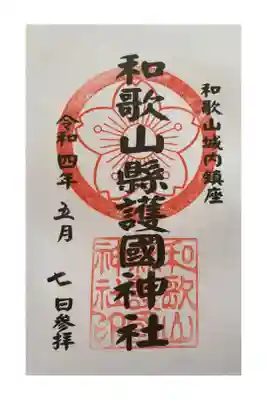 和歌山城内鎮座
和歌山縣護國神社
令和四年 五月 七日參拝
和歌山
縣護國
神社印